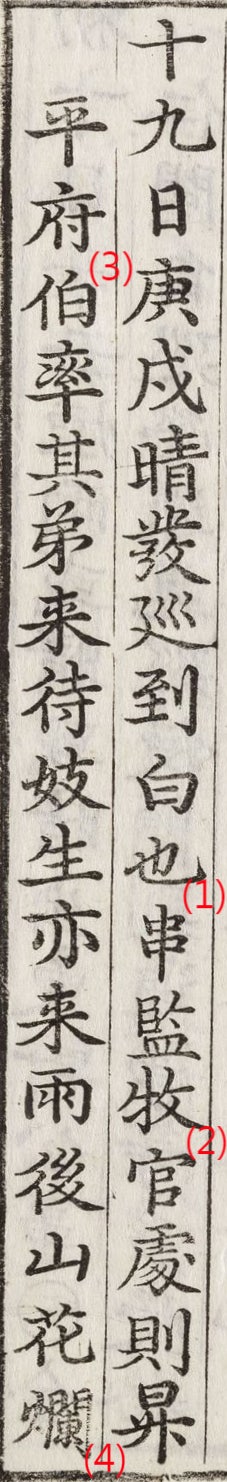 十九日庚戌晴發廵到白也串監牧官處則昇
平府伯率其弟来待妓生亦来雨後山花爛
(1)
(2)
(3)
(4)